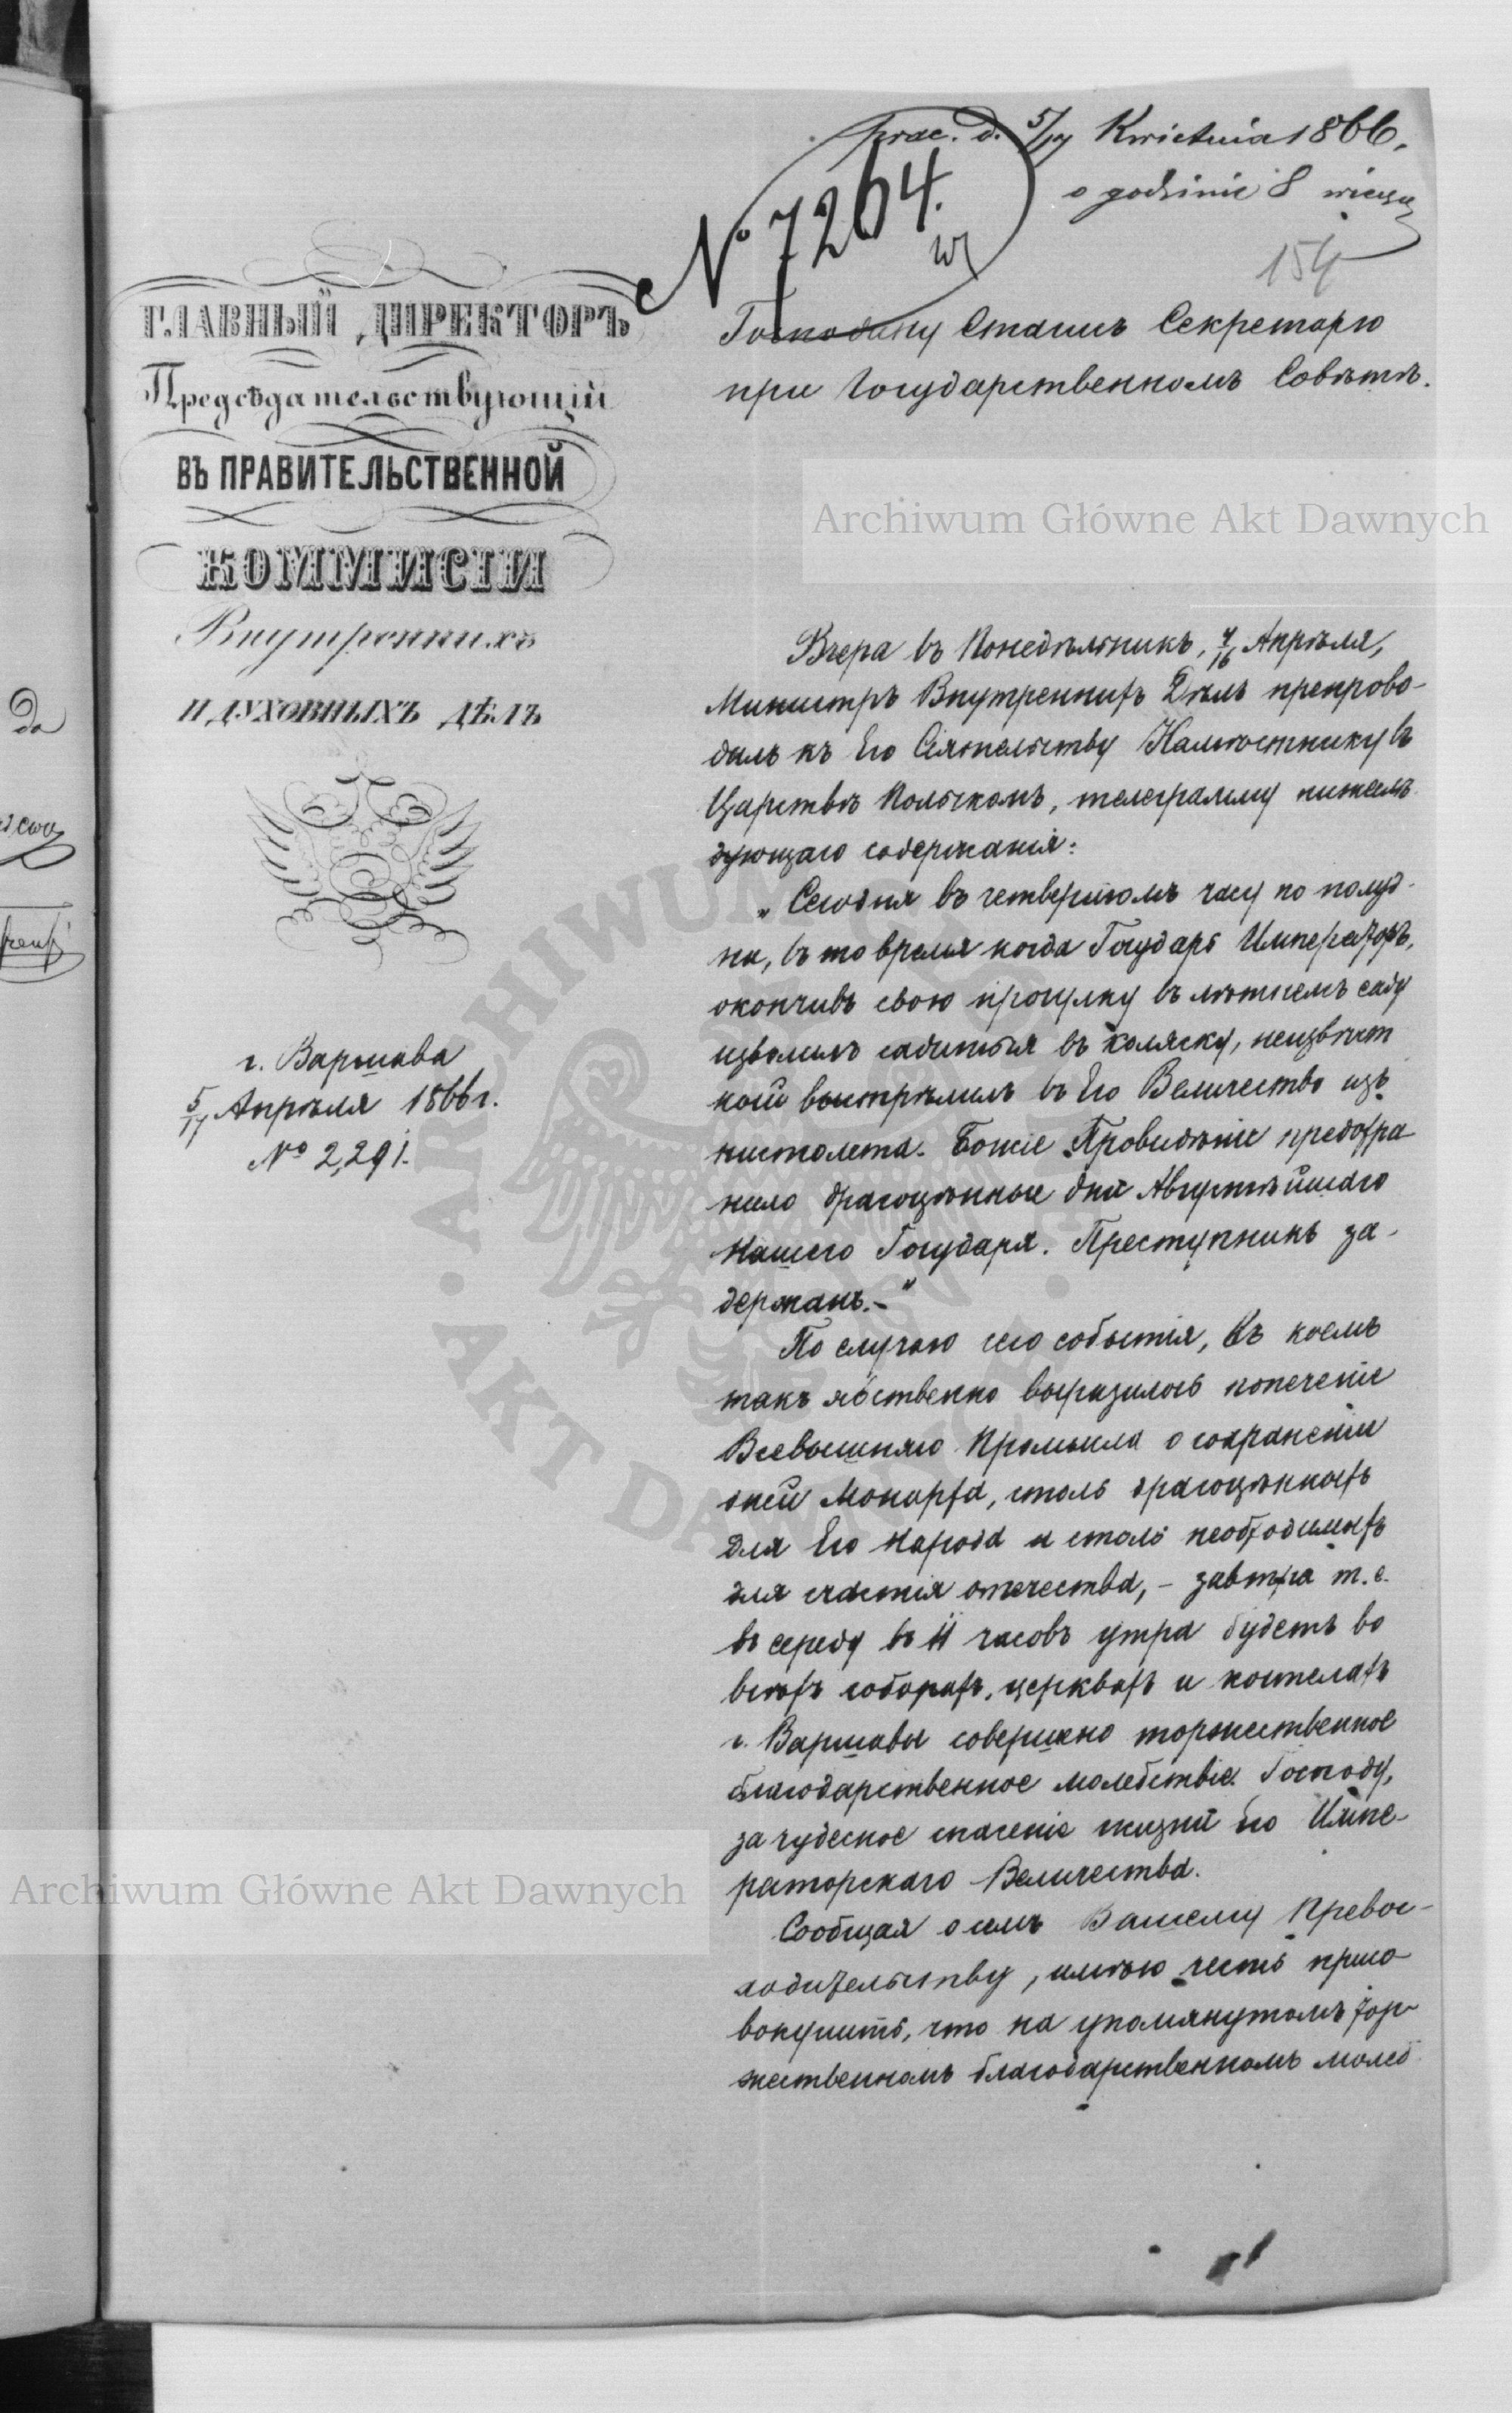 prac. d. 5/17 Kwietnia 1866.
o godzinie 8 wiecz
№ 7264.
154
ГЛАВНЫЙ ДИРЕКТОРЪ
Предсѣдательствующій
ВЪ ПРАВИТЕЛЬСТВЕННОЙ
КОММИСІИ
Внутреннихъ
И ДУХОВНЫХЪ ДѢЛЪ
г. Варшава
5/17 Апрѣля 1866 г.
№ 2,291.
Господину Статсъ Секретарю
при Государственномъ Совѣтѣ.
Вчера въ Понедѣльникъ, 4/16 Апрѣля,
Министръ Внутреннихъ Дѣлъ препрово-
дилъ къ Его Сіятельству Намѣстнику въ
Царствѣ Польскомъ, телеграмму нижеслѣ
дующаго содержанія:
„Сегодня въ четвертомъ часу по полуд-
ни, въ то время когда Государь Императоръ,
окончивъ свою прогулку въ лѣтнемъ саду
изволилъ садиться въ коляску, неизвѣст
ный выстрѣлилъ въ Его Величество изъ
пистолета. Божіе Провидѣніе предохра
нило драгоцѣнные дни Августѣйшаго
Нашего Государя. Преступникъ за-
держанъ.–"
По случаю сего событія, въ коемъ
такъ явственно выразилось попеченіе
Всевышняго Промысла о сохраненіи
дней Монарха, столь драгоцѣнныхъ
для Его народа и столь необходимыхъ
для счастія отечества, – завтра т. е.
въ середу въ 11 часовъ утра будетъ во
всѣхъ соборахъ, церквахъ и костелахъ
г. Варшавы совершено торжественное
благодарственное молебствіе Господу,
за чудесное спасеніе жизни Его Импе-
раторскаго Величества.
Сообщая о семъ Вашему Превос-
ходительству, имѣю честь присо
вокупить, что на упомянутомъ тор-
жественномъ благодарственномъ молеб
Archiwum Główne Akt Dawnych
Archiwum Główne Akt Dawnych
ARCHIWUM GŁÓWNE
AKT DAWNYCH